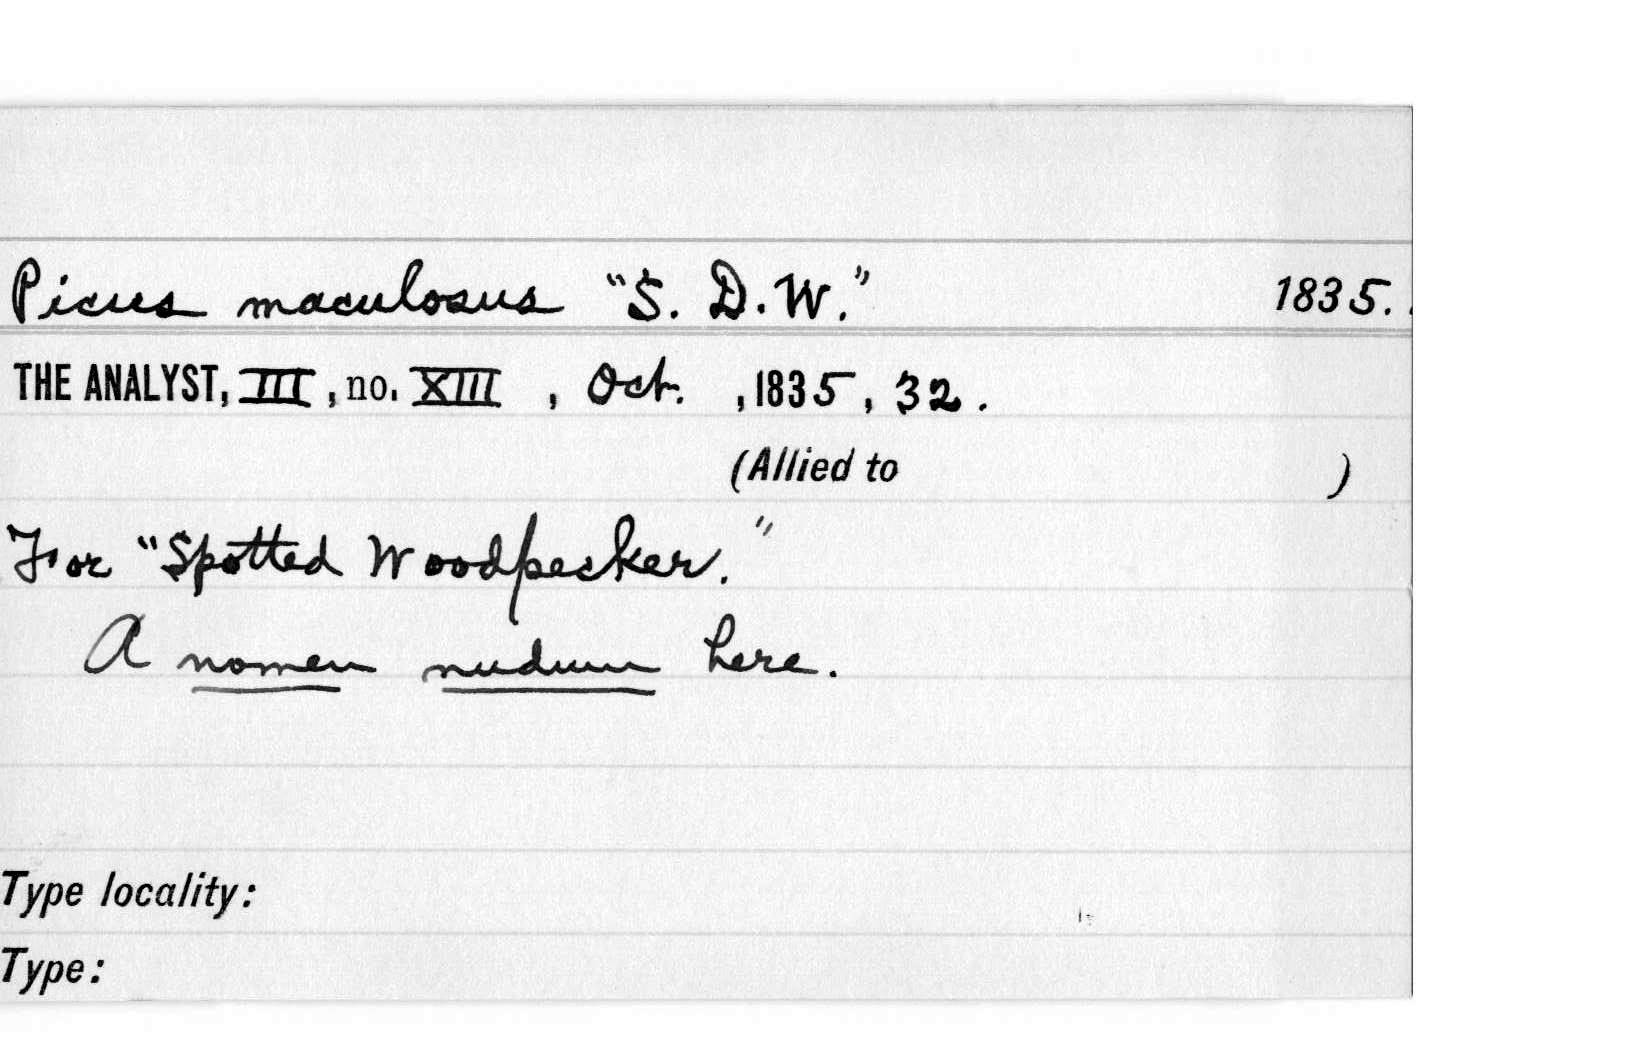 Picus maculosus "S. D. W." 1835.
THE ANALYST, III, no. XIII, Oct., 1835, 32.
(Allied to )
For "Spotted Woodpecker."
A nomen nudum here.
Type locality:
Type: